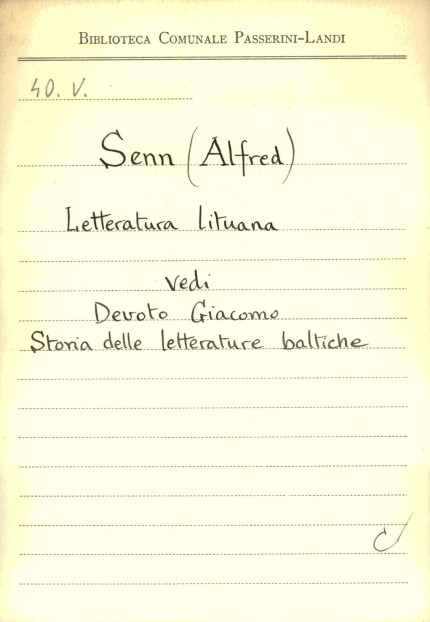 Biblioteca Comunale Passerini-Landi
40. V.
Senn (Alfred)
Letteratura lituana
vedi
Devoto Giacomo
Storia delle letterature baltiche